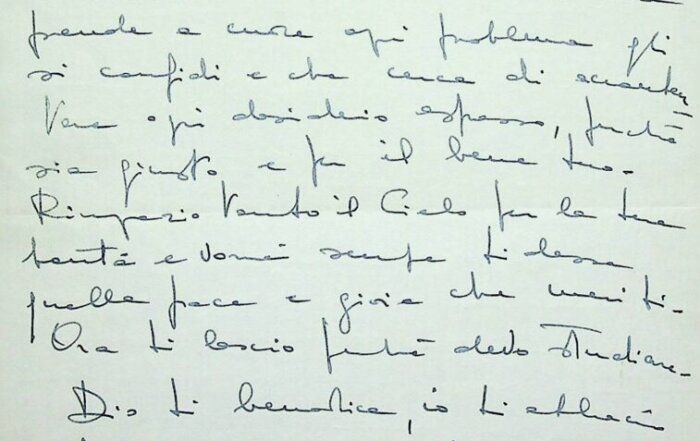 prende a cuore ogni problema gli
si confidi e che cerca di acconten
tare ogni desiderio espresso, purché
sia giusto e per il bene tuo.
Ringrazio tanto il Cielo per la tua
bontà e vorrei sempre ti desse
quella pace e gioia che meriti.
Ora ti lascio perché devo studiare.
Dio ti benedica, io ti abbraccio